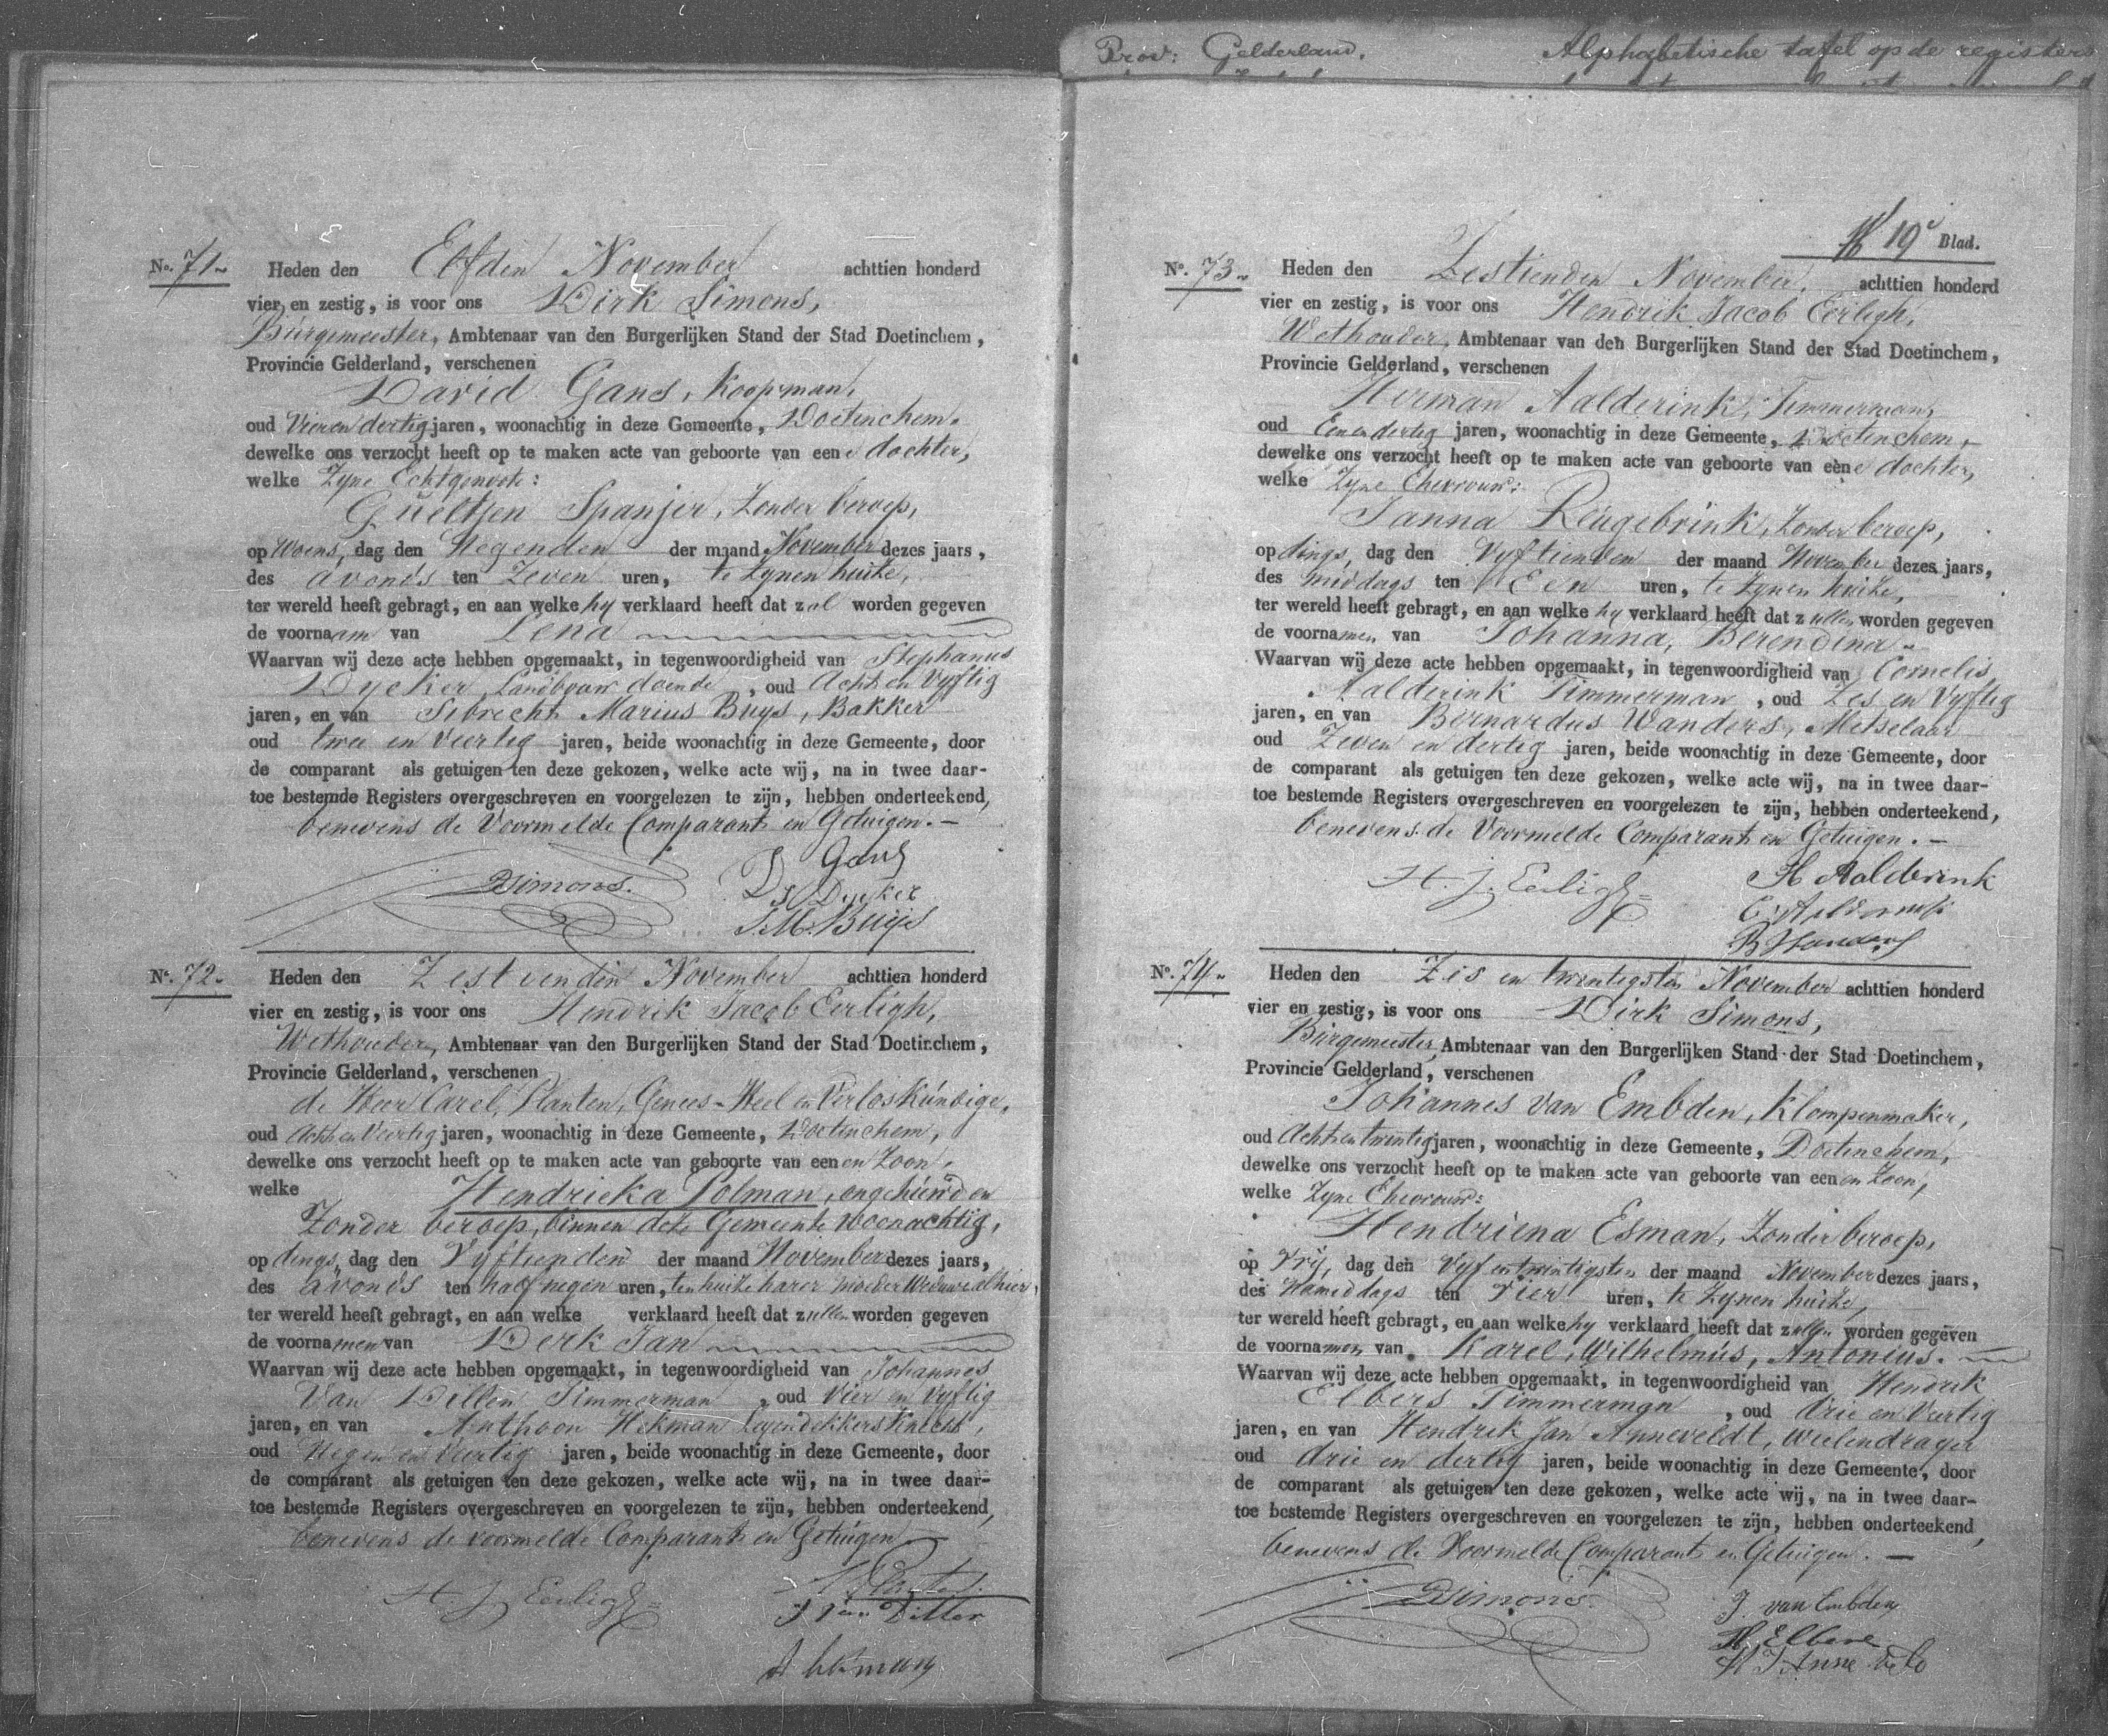 Prov: Gelderland. Alphabetische tafel op de registers
No. 71. Heden den Elfden November achttien honderd
vier en zestig, is voor ons Dirk Simons,
Burgemeester, Ambtenaar van den Burgerlijken Stand der Stad Doetinchem,
Provincie Gelderland, verschenen
David Gans, Koopman,
oud Vier en dertig jaren, woonachtig in deze Gemeente, Doetinchem,
dewelke ons verzocht heeft op te maken acte van geboorte van eene dochter,
welke Zyne Echtgenoote:
Gueltjen Spanjer, Zonder beroep,
op Woens, dag den Negenden der maand November dezes jaars,
des avonds ten Zeven uren, te Zynen huize,
ter wereld heeft gebragt, en aan welke hy verklaard heeft dat zal worden gegeven
de voornaam van Lena
Waarvan wij deze acte hebben opgemaakt, in tegenwoordigheid van Stephanus
Dycker, Landbouw doende, oud Acht en Vyftig
jaren, en van Sibrecht Marius Buys, Bakker
oud twee en Veertig jaren, beide woonachtig in deze Gemeente, door
de comparant als getuigen ten deze gekozen, welke acte wij, na in twee daar-
toe bestemde Registers overgeschreven en voorgelezen te zijn, hebben onderteekend,
benevens de Voormelde Comparant en Getuigen. —
D Gans
DSimons. S Dycker
S.M. Buijs
No. 72. Heden den Zestienden November achttien honderd
vier en zestig, is voor ons Hendrik Jacob Eerligh,
Wethouder, Ambtenaar van den Burgerlijken Stand der Stad Doetinchem,
Provincie Gelderland, verschenen
de Heer Carel Planten, Genees-Heel en Verloskundige,
oud Acht en Veertig jaren, woonachtig in deze Gemeente, Doetinchem,
dewelke ons verzocht heeft op te maken acte van geboorte van eenen Zoon,
welke Hendrieka Polman, ongehuwd en
Zonder beroep, binnen deze Gemeente woonachtig,
op dings, dag den Vyftienden der maand November dezes jaars,
des avonds ten half negen uren, ten huize harer moeder Weduwe alhier,
ter wereld heeft gebragt, en aan welke verklaard heeft dat zullen worden gegeven
de voornamen van Derk Jan
Waarvan wij deze acte hebben opgemaakt, in tegenwoordigheid van Johannes
Van Dillen Timmerman, oud Vier en Vyftig
jaren, en van Anthoon Hekman Leyendekkers Knecht,
oud Negen en Veertig jaren, beide woonachtig in deze Gemeente, door
de comparant als getuigen ten deze gekozen, welke acte wij, na in twee daar-
toe bestemde Registers overgeschreven en voorgelezen te zijn, hebben onderteekend,
benevens de voormelde Comparant en Getuigen
H. J. Eerligh
J van Dillen
A hekman
19e Blad.
No. 73. Heden den Zestienden November, achttien honderd
vier en zestig, is voor ons Hendrik Jacob Eerligh,
Wethouder, Ambtenaar van den Burgerlijken Stand der Stad Doetinchem,
Provincie Gelderland, verschenen
Herman Aalderink, Timmerman,
oud Een en dertig jaren, woonachtig in deze Gemeente, Doetinchem,
dewelke ons verzocht heeft op te maken acte van geboorte van eene dochter,
welke Zyne Ehevrouw:
Janna Reugebrink, Zonder beroep,
op dings, dag den Vyftienden der maand November dezes jaars,
des middags ten Een uren, te Zynen huize,
ter wereld heeft gebragt, en aan welke hy verklaard heeft dat zullen worden gegeven
de voornamen van Johanna, Berendina.
Waarvan wij deze acte hebben opgemaakt, in tegenwoordigheid van Cornelis
Aalderink Timmerman, oud Zes en Vyftig
jaren, en van Bernardus Wanders, Metselaar
oud Zeven en dertig jaren, beide woonachtig in deze Gemeente, door
de comparant als getuigen ten deze gekozen, welke acte wij, na in twee daar-
toe bestemde Registers overgeschreven en voorgelezen te zijn, hebben onderteekend,
benevens de Voormelde Comparant en Getuigen. —
H. J. Eerligh H Aalderink
B Wanders
No. 74. Heden den Zes en twintigsten November achttien honderd
vier en zestig, is voor ons Dirk Simons,
Burgemeester, Ambtenaar van den Burgerlijken Stand der Stad Doetinchem,
Provincie Gelderland, verschenen
Johannes van Embden, Klompenmaker,
oud Acht en twintig jaren, woonachtig in deze Gemeente, Doetinchem,
dewelke ons verzocht heeft op te maken acte van geboorte van eenen Zoon,
welke Zyne Ehevrouw:
Hendriena Esman, Zonder beroep,
op Vrij, dag den Vyf en twintigsten der maand November dezes jaars,
des Namiddags ten Vier uren, te Zynen huize,
ter wereld heeft gebragt, en aan welke hy verklaard heeft dat zullen worden gegeven
de voornamen van Karel, Wilhelmus, Antonius.
Waarvan wij deze acte hebben opgemaakt, in tegenwoordigheid van Hendrik
Elbers Timmerman, oud drie en Veertig
jaren, en van Hendrik Jan Anneveldt, Weelendrager
oud drie en dertig jaren, beide woonachtig in deze Gemeente, door
de comparant als getuigen ten deze gekozen, welke acte wij, na in twee daar-
toe bestemde Registers overgeschreven en voorgelezen te zijn, hebben onderteekend,
benevens de Voormelde Comparant en Getuigen. —
DSimons. J. van Embden
H Elbers